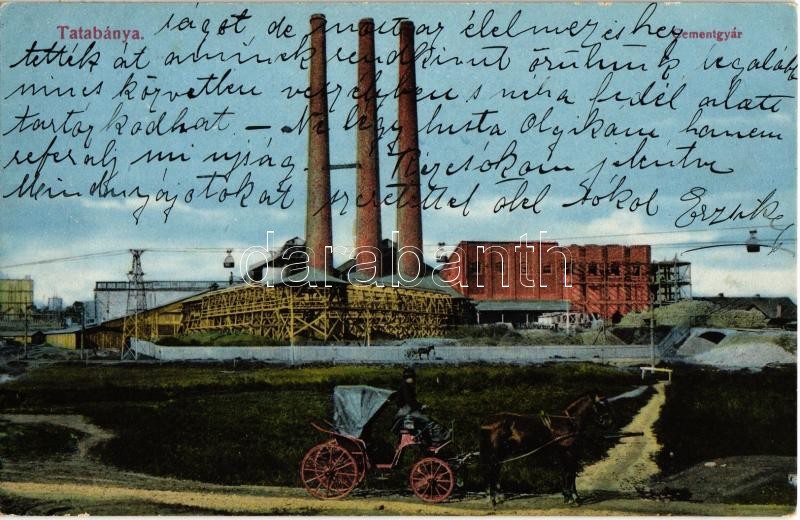 Tatabánya.
Cementgyár
ságot de most az élelmezés hely
tették át aminek rendkívül örülünk legalább
nincs közvetlen veszélyben s néha fedél alatt
tartózkodhat – Ne légy lusta Olgikám hanem
referálj mi ujság. Kézcsókom jelentve
Mindnyájotokat szeretettel ölel Csókol Erzsike
darabanth